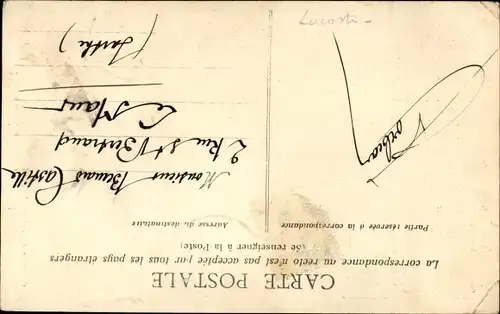 CARTE POSTALE
La correspondance au recto n'est pas acceptée par tous les pays étrangers
(Se renseigner à la Poste)
Partie réservée à la correspondance
Adresse du destinataire
Monsieur Castille
2 Rue St Bertrand
Le Mans
(Sarthe)